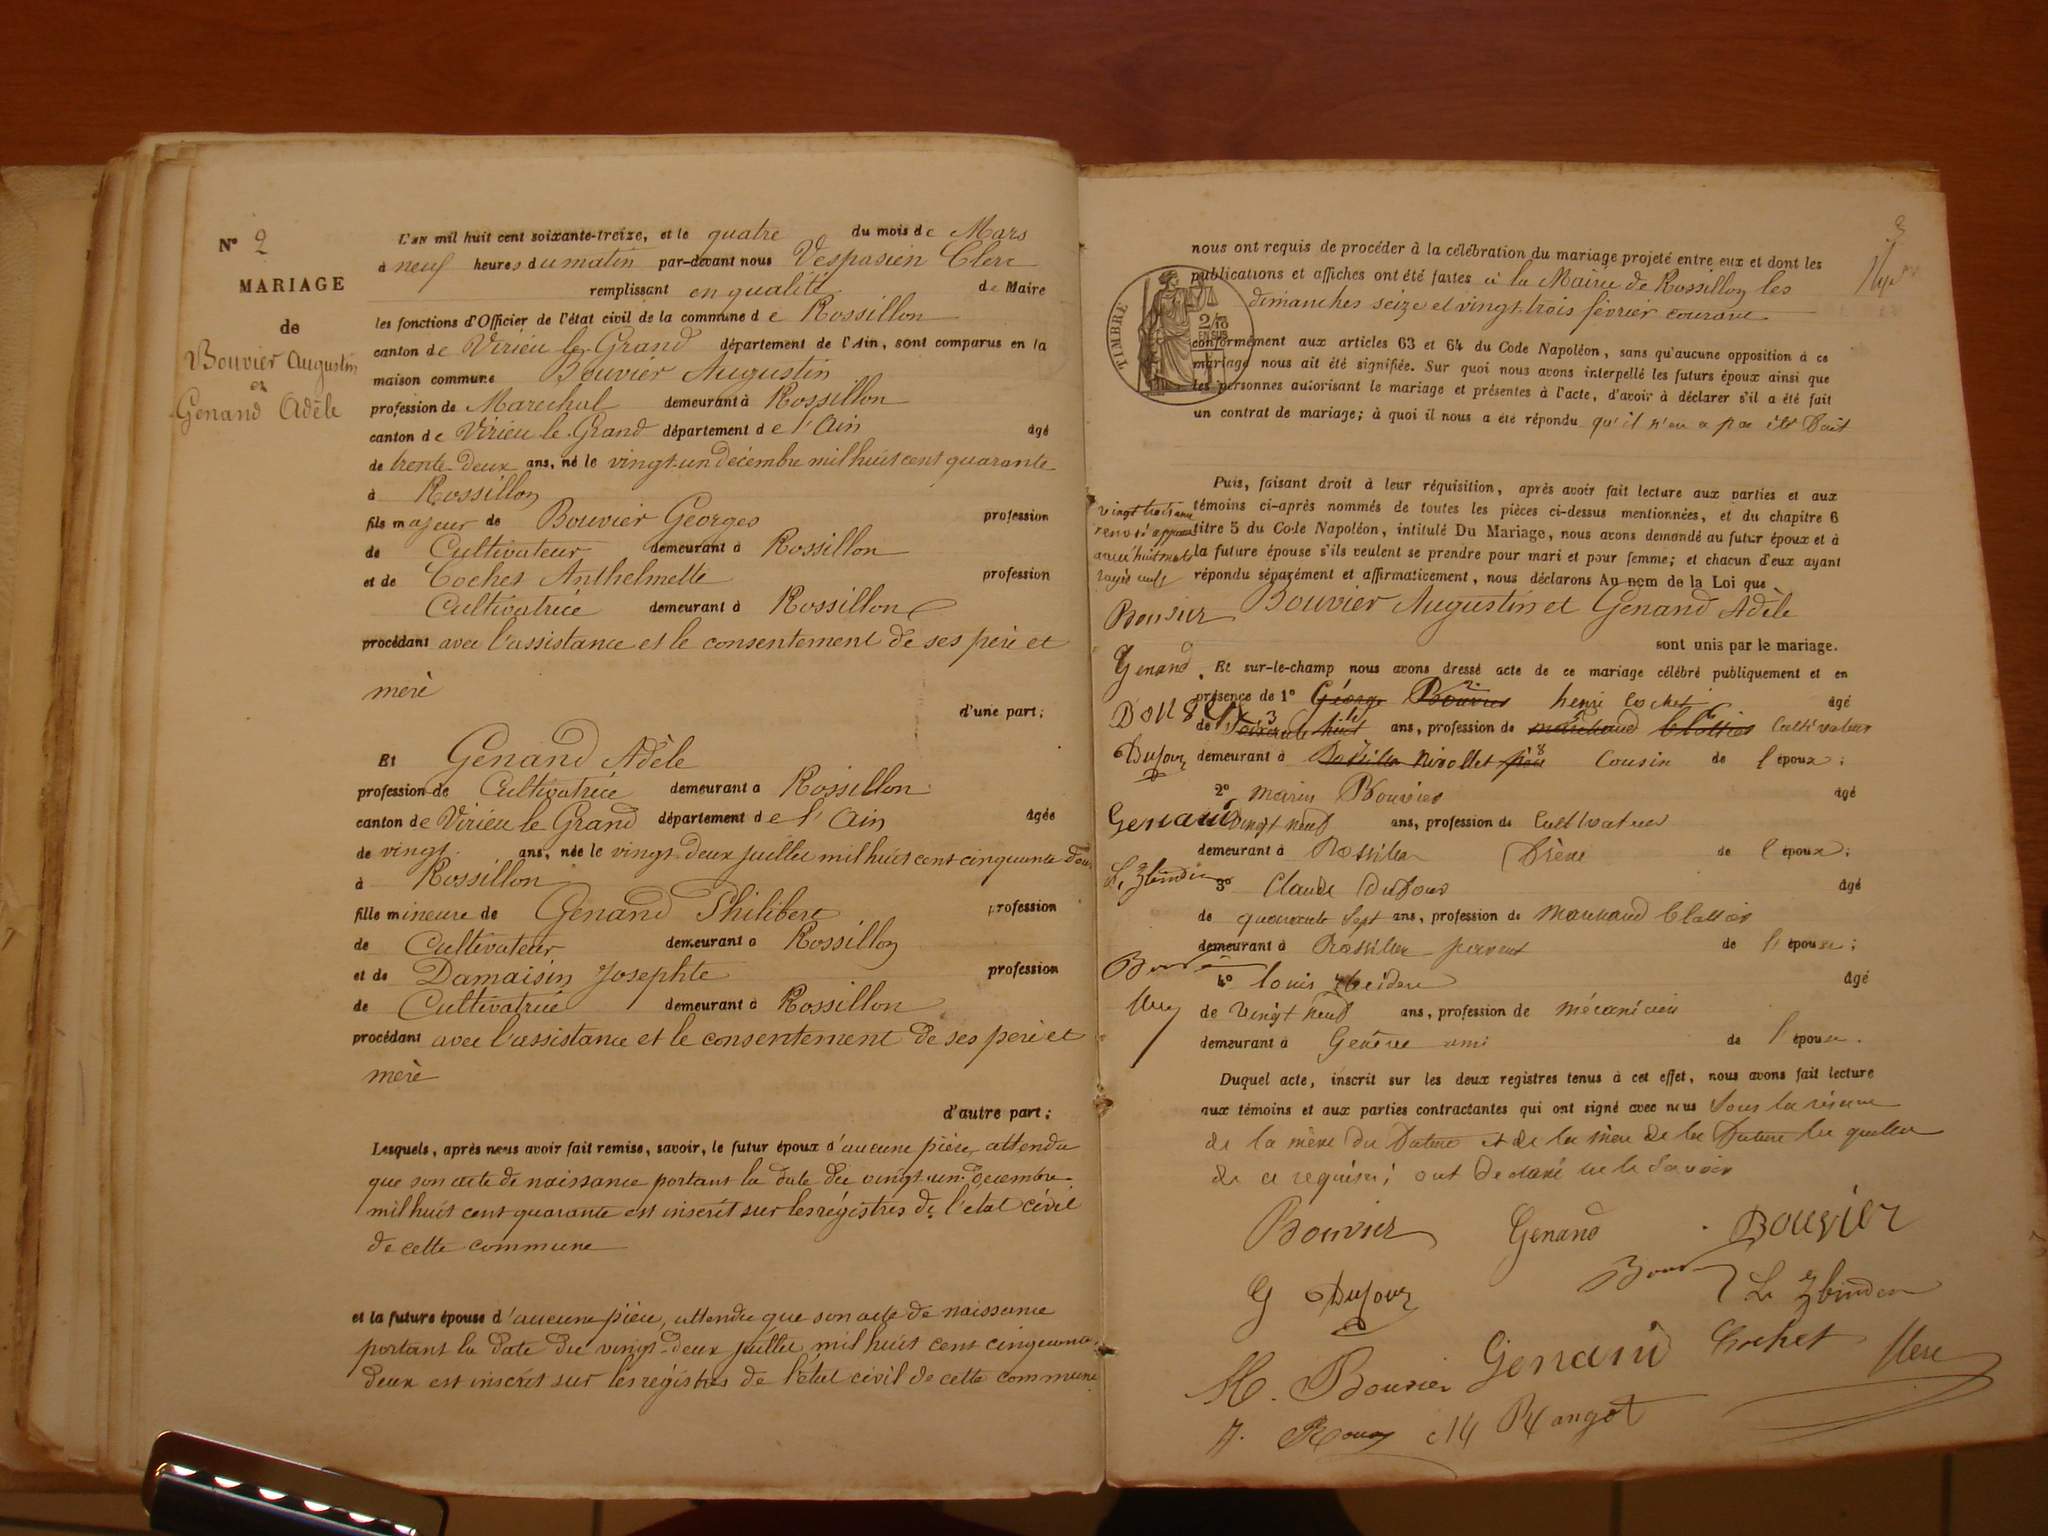 N° 2
MARIAGE
de
Bouvier Augustin
et
Genand Adèle
L'AN mil huit cent soixante-treize, et le quatre du mois de Mars
à neuf heures du matin par-devant nous Vespasien Clerc
remplissant en qualité de Maire
les fonctions d'Officier de l'état civil de la commune de Rossillon
canton de Virieu le Grand département de l'Ain, sont comparus en la
maison commune Bouvier Augustin
profession de Marechal demeurant à Rossillon
canton de Virieu le Grand département de l'Ain âgé
de trente-deux ans, né le vingt-un décembre mil huit cent quarante
à Rossillon
fils majeur de Bouvier Georges profession
de Cultivateur demeurant à Rossillon
et de Cochet Anthelmette profession
Cultivatrice demeurant à Rossillon
procédant avec l'assistance et le consentement de ses père et
mère
d'une part;
Et Genand Adèle
profession de Cultivatrice demeurant à Rossillon
canton de Virieu le Grand département de l'Ain âgée
de vingt ans, née le vingt-deux juillet mil huit cent cinquante deux
à Rossillon
fille mineure de Genand Philibert profession
de Cultivateur demeurant à Rossillon
et de Damaisin Josephte profession
de Cultivatrice demeurant à Rossillon
procédant avec l'assistance et le consentement de ses père et
mère
d'autre part;
Lesquels, après nous avoir fait remise, savoir, le futur époux d'aucune pièce, attendu
que son acte de naissance portant la date du vingt-un Décembre
mil huit cent quarante est inscrit sur les régistres de l'état civil
de cette commune
et la future épouse d'aucune pièce, attendu que son acte de naissance
portant la date du vingt-deux juillet mil huit cent cinquante
deux est inscrit sur les régistres de l'état civil de cette commune
3
nous ont requis de procéder à la célébration du mariage projeté entre eux et dont les
publications et affiches ont été faites à la Mairie de Rossillon les
dimanches seize et vingt-trois février courant
TIMBRE
2/10
EN SUS
conformément aux articles 63 et 64 du Code Napoléon, sans qu'aucune opposition à ce
mariage nous ait été signifiée. Sur quoi nous avons interpellé les futurs époux ainsi que
les personnes autorisant le mariage et présentes à l'acte, d'avoir à déclarer s'il a été fait
un contrat de mariage; à quoi il nous a été répondu qu'il n'en a pas été fait
Puis, faisant droit à leur réquisition, après avoir fait lecture aux parties et aux
témoins ci-après nommés de toutes les pièces ci-dessus mentionnées, et du chapitre 6
titre 5 du Code Napoléon, intitulé Du Mariage, nous avons demandé au futur époux et à
la future épouse s'ils veulent se prendre pour mari et pour femme; et chacun d'eux ayant
répondu séparément et affirmativement, nous déclarons Au nom de la Loi que
Bouvier Augustin et Genand Adèle
sont unis par le mariage.
Et sur-le-champ nous avons dressé acte de ce mariage célébré publiquement et en
présence de 1° George Bouvier henri Cochet âgé
de Soixante huit ans, profession de marchand Cultivateur
demeurant à Cousin de l'époux;
2° marin Bouvier âgé
de vingt neuf ans, profession de Cultivateur
demeurant à Rossillon frère de l'époux;
3° Claude Dufour âgé
de quarante Sept ans, profession de Marchand
demeurant à Rossillon parent de l'épouse;
4° Louis âgé
de vingt neuf ans, profession de mécanicien
demeurant à Genève ami de l'épouse.
Duquel acte, inscrit sur les deux registres tenus à cet effet, nous avons fait lecture
aux témoins et aux parties contractantes qui ont signé avec nous Sous la réserve
de la mère du futur et de la mère de la future les quelles
de ce requises, ont déclaré ne le Savoir
Bouvier
Genand
Dufour
Genand
L. Zbinden
Bouvier Genand Bouvier
G Dufour L. Zbinden
M. Bouvier Genand Cochet Clerc